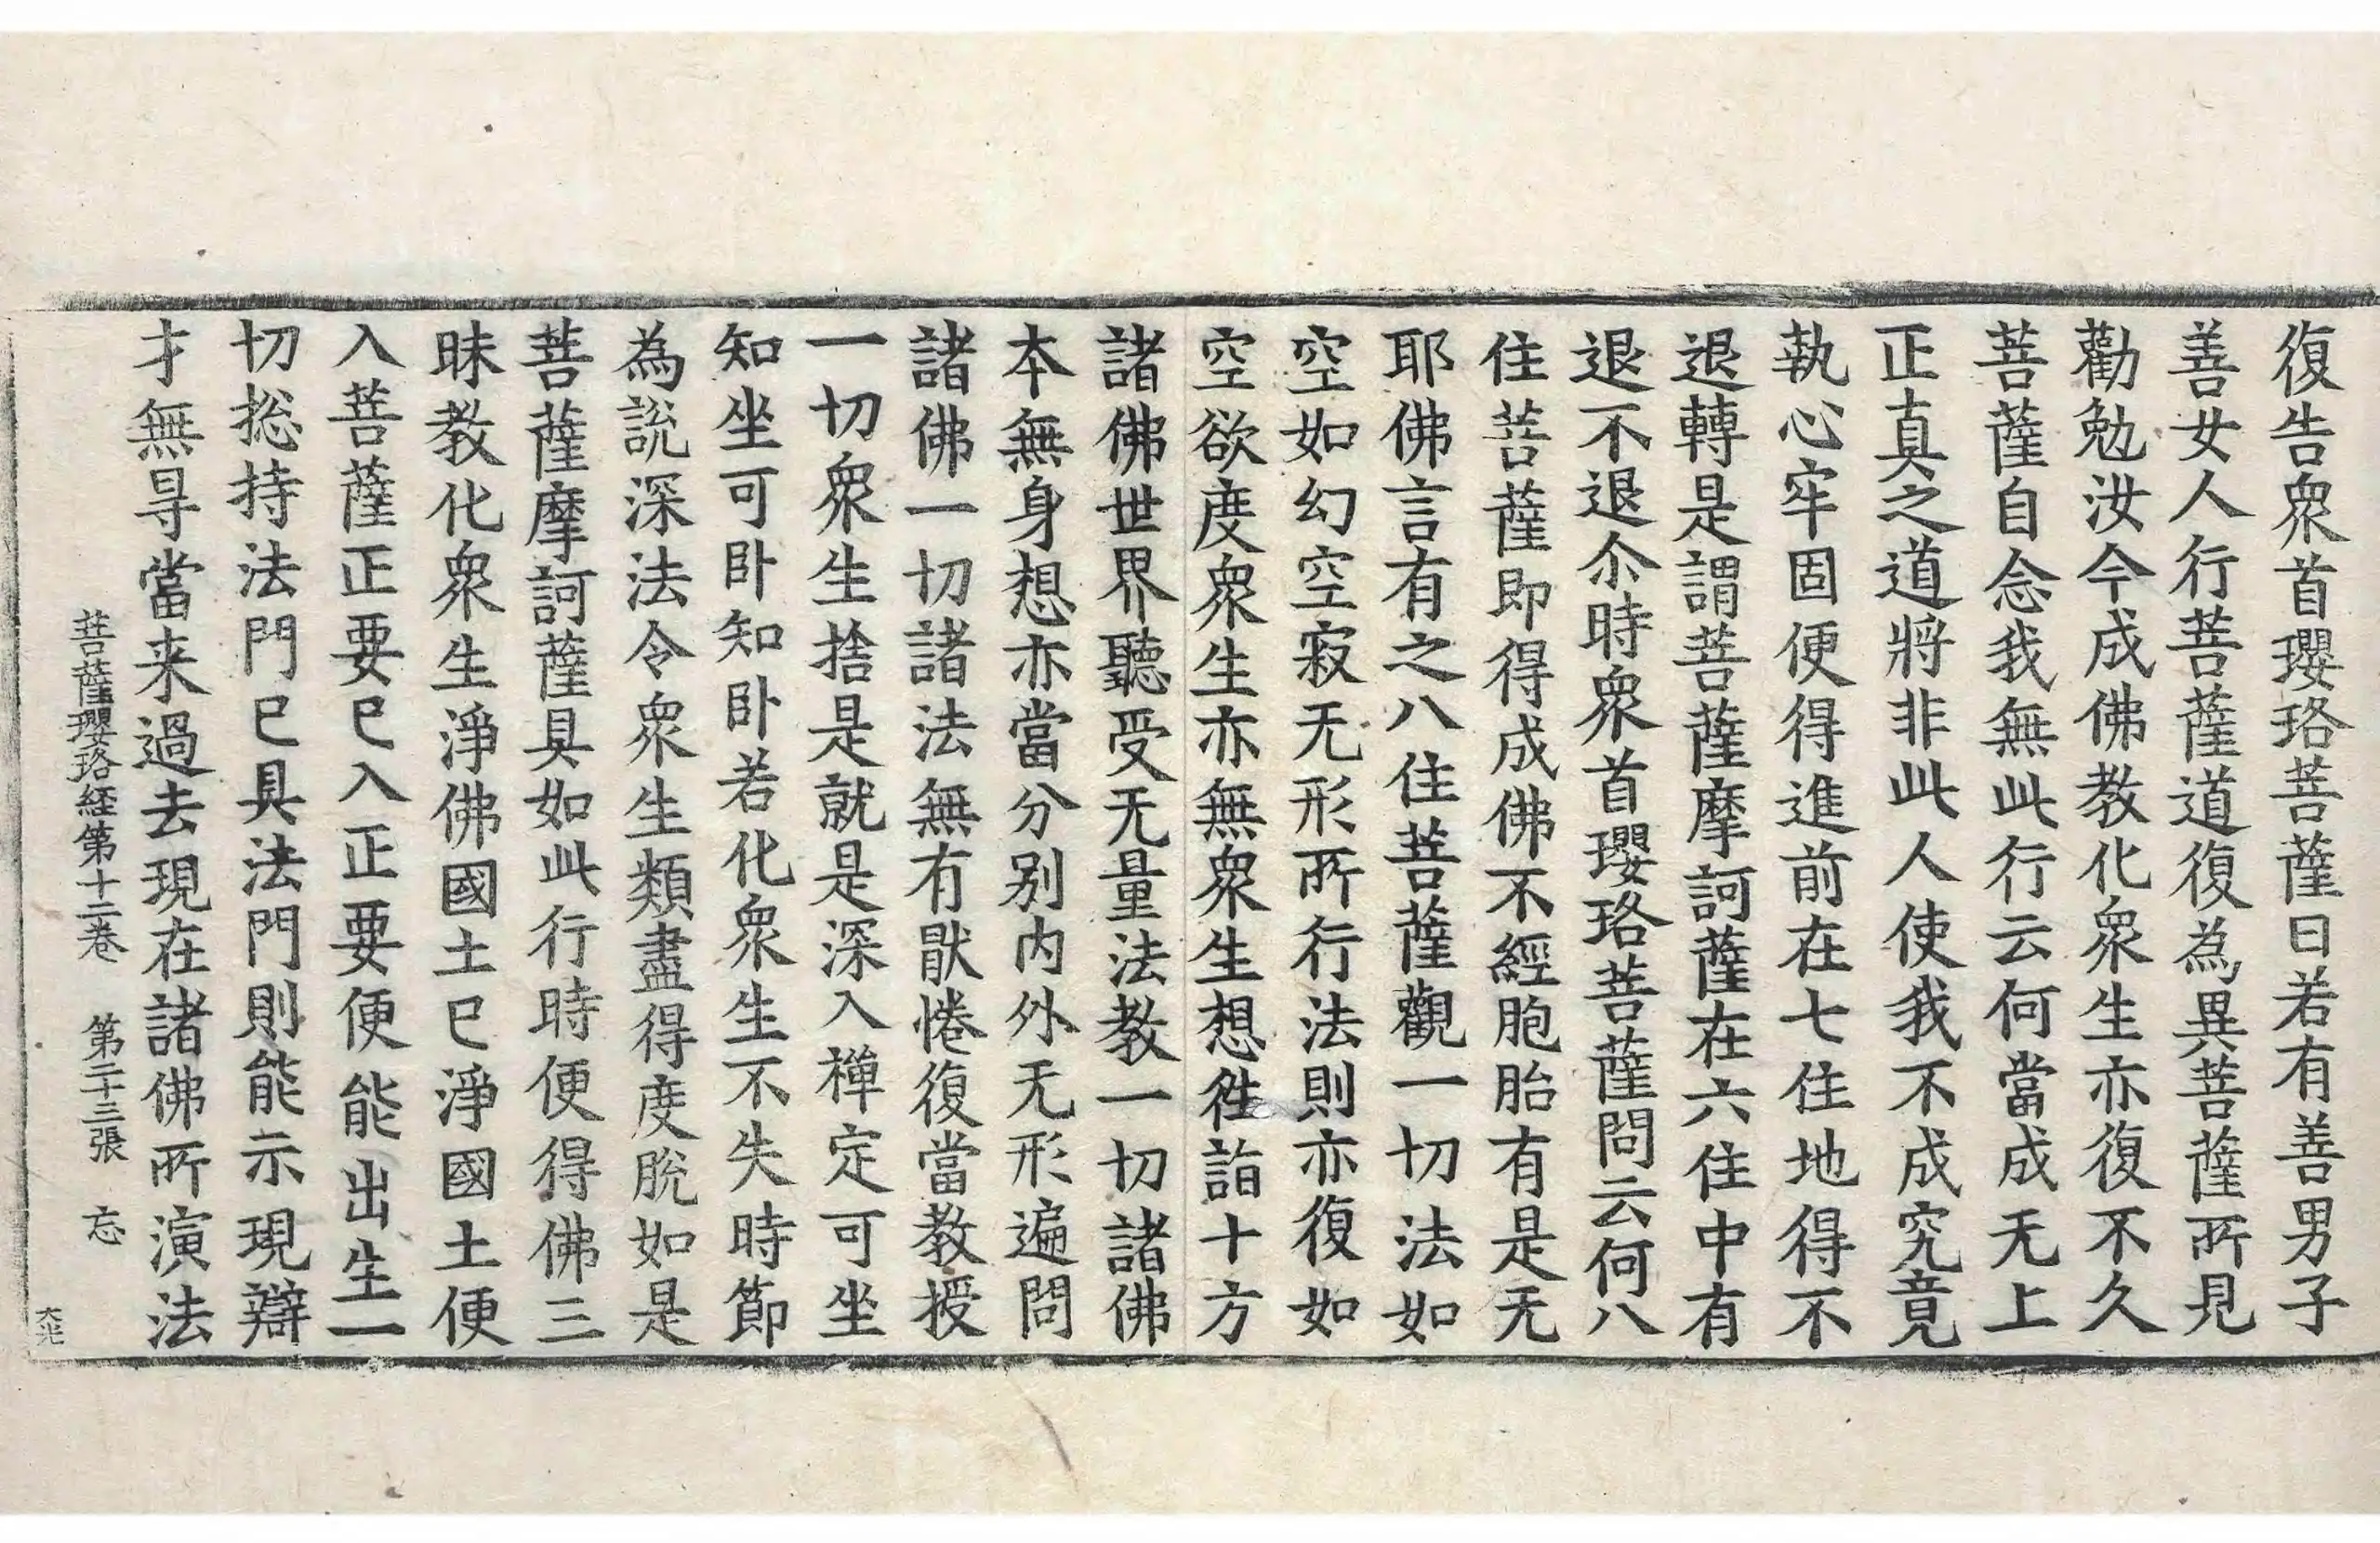 復告衆首瓔珞菩薩曰若有善男子
善女人行菩薩道復為異菩薩所見
勸勉汝今成佛教化衆生亦復不久
菩薩自念我無此行云何當成无上
正真之道將非此人使我不成究竟
執心牢固便得進前在七住地得不
退轉是謂菩薩摩訶薩在六住中有
退不退尒時衆首瓔珞菩薩問云何八
住菩薩即得成佛不經胞胎有是无
耶佛言有之八住菩薩觀一切法如
空如幻空寂无形所行法則亦復如
空欲度衆生亦無衆生想徃詣十方
諸佛世界聽受无量法教一切諸佛
本無身想亦當分別内外无形遍問
諸佛一切諸法無有猒惓復當教授
一切衆生捨是就是深入禪定可坐
知坐可卧知卧若化衆生不失時節
為說深法令衆生類盡得度脫如是
菩薩摩訶薩具如此行時便得佛三
昧教化衆生淨佛國土已淨國土便
入菩薩正要已入正要便能出生一
切捴持法門已具法門則能示現辯
才無㝵當来過去現在諸佛所演法
菩薩瓔珞経第十二卷 第二十三張 忘
大光